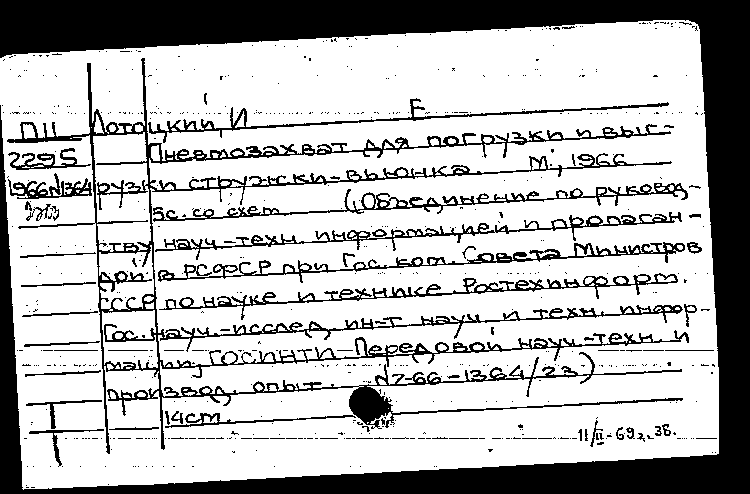 Е
ПII Лотоцкий, И
2295 Пневмозахват для погрузки и выг-
1966 №1364 рузки стружки-вьюнка. М., 1966
5с. со схем. (Объединение по руковод-
ству науч.-техн. информацией и пропаган-
дой в РСФСР при Гос. ком. Совета Министров
СССР по науке и технике. Ростехинформ.
Гос. науч.-исслед. ин-т науч. и техн. инфор-
мации, ГОСИНТИ. Передовой науч.-техн. и
производ. опыт. №7-66-1364/23)
14см.
11/II-69г. ЗВ.